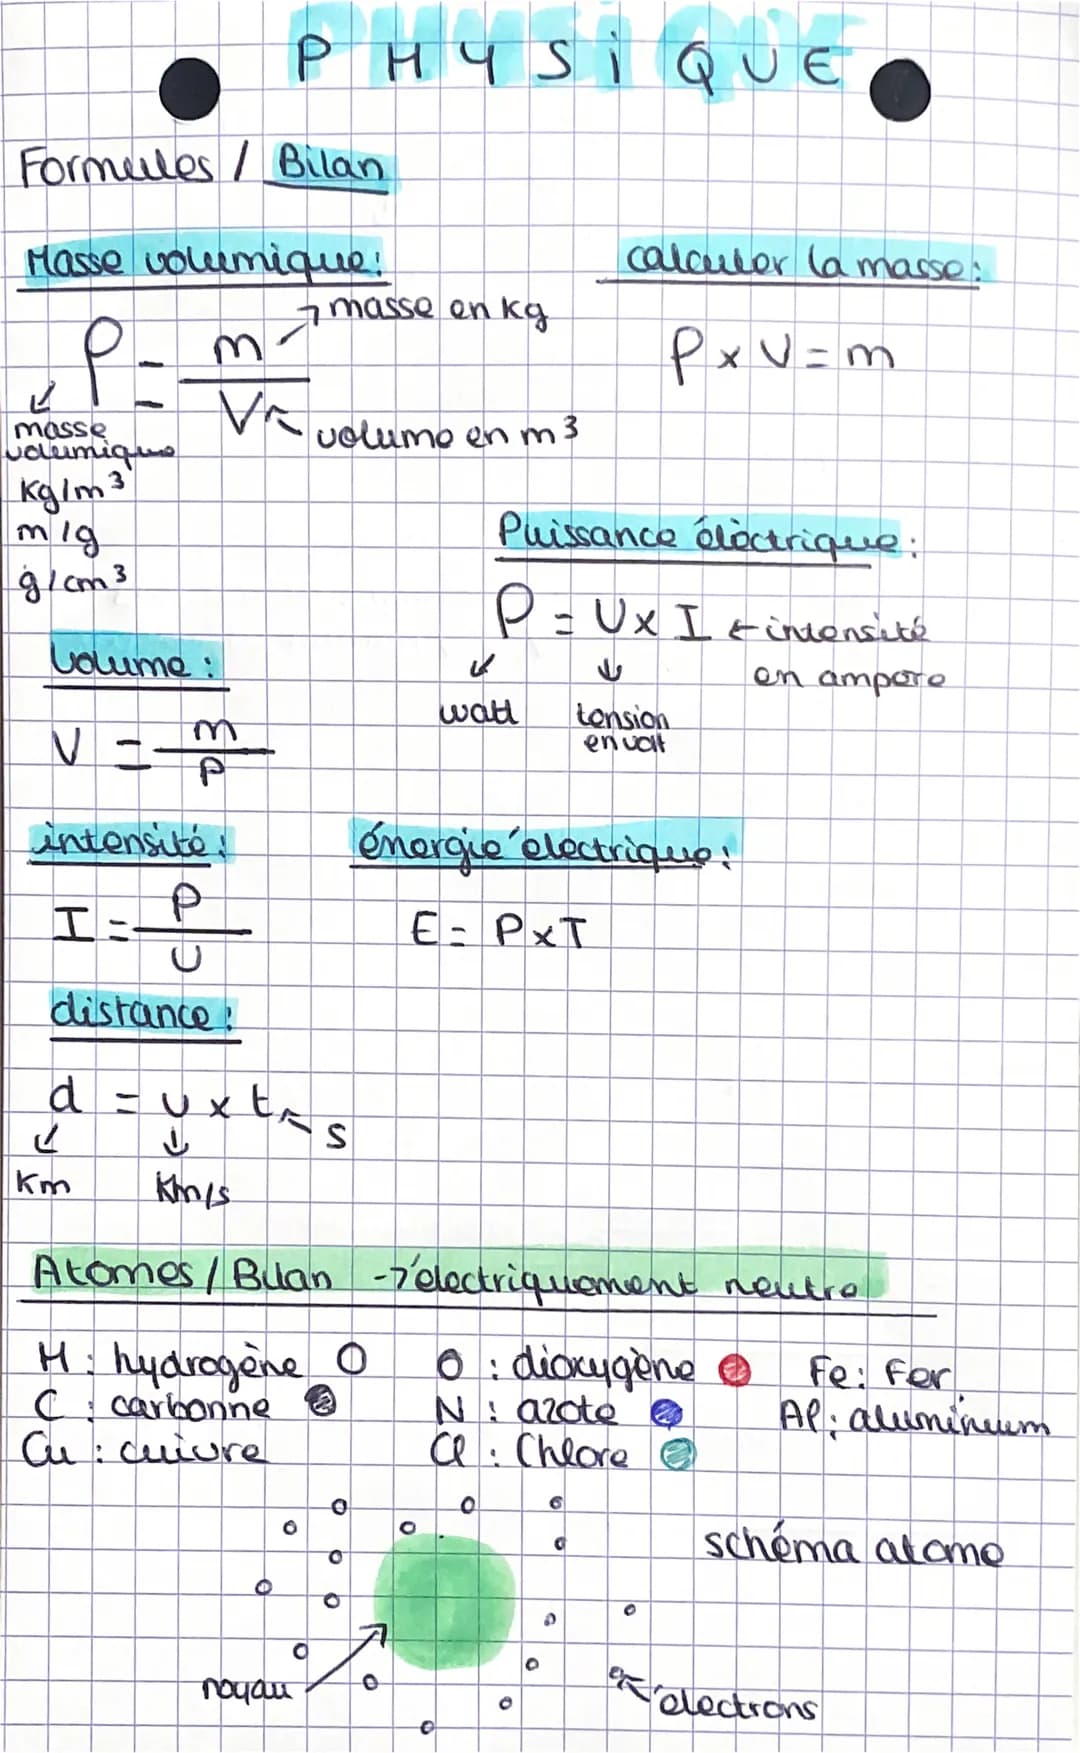 PHYSIQUE
Formules / Bilan
Masse volumique:
ρ = m / V
masse en kg
volume en m³
masse
volumique
Kg/m³
m/g
g/cm³
calculer la masse:
ρ x V = m
Puissance électrique:
P = U x I ← intensité
en ampere
watt
tension
en volt
volume:
V = m / ρ
intensité:
I = P / U
énergie électrique:
E = P x T
distance:
d = v x t
s
Km
Km/s
Atomes / Bilan → électriquement neutre
H: hydrogène O: dioxygène Fe: Fer
C: carbonne N: azote Al: aluminium
Cu: cuivre Cl: Chlore
schéma atome
noyau
électrons